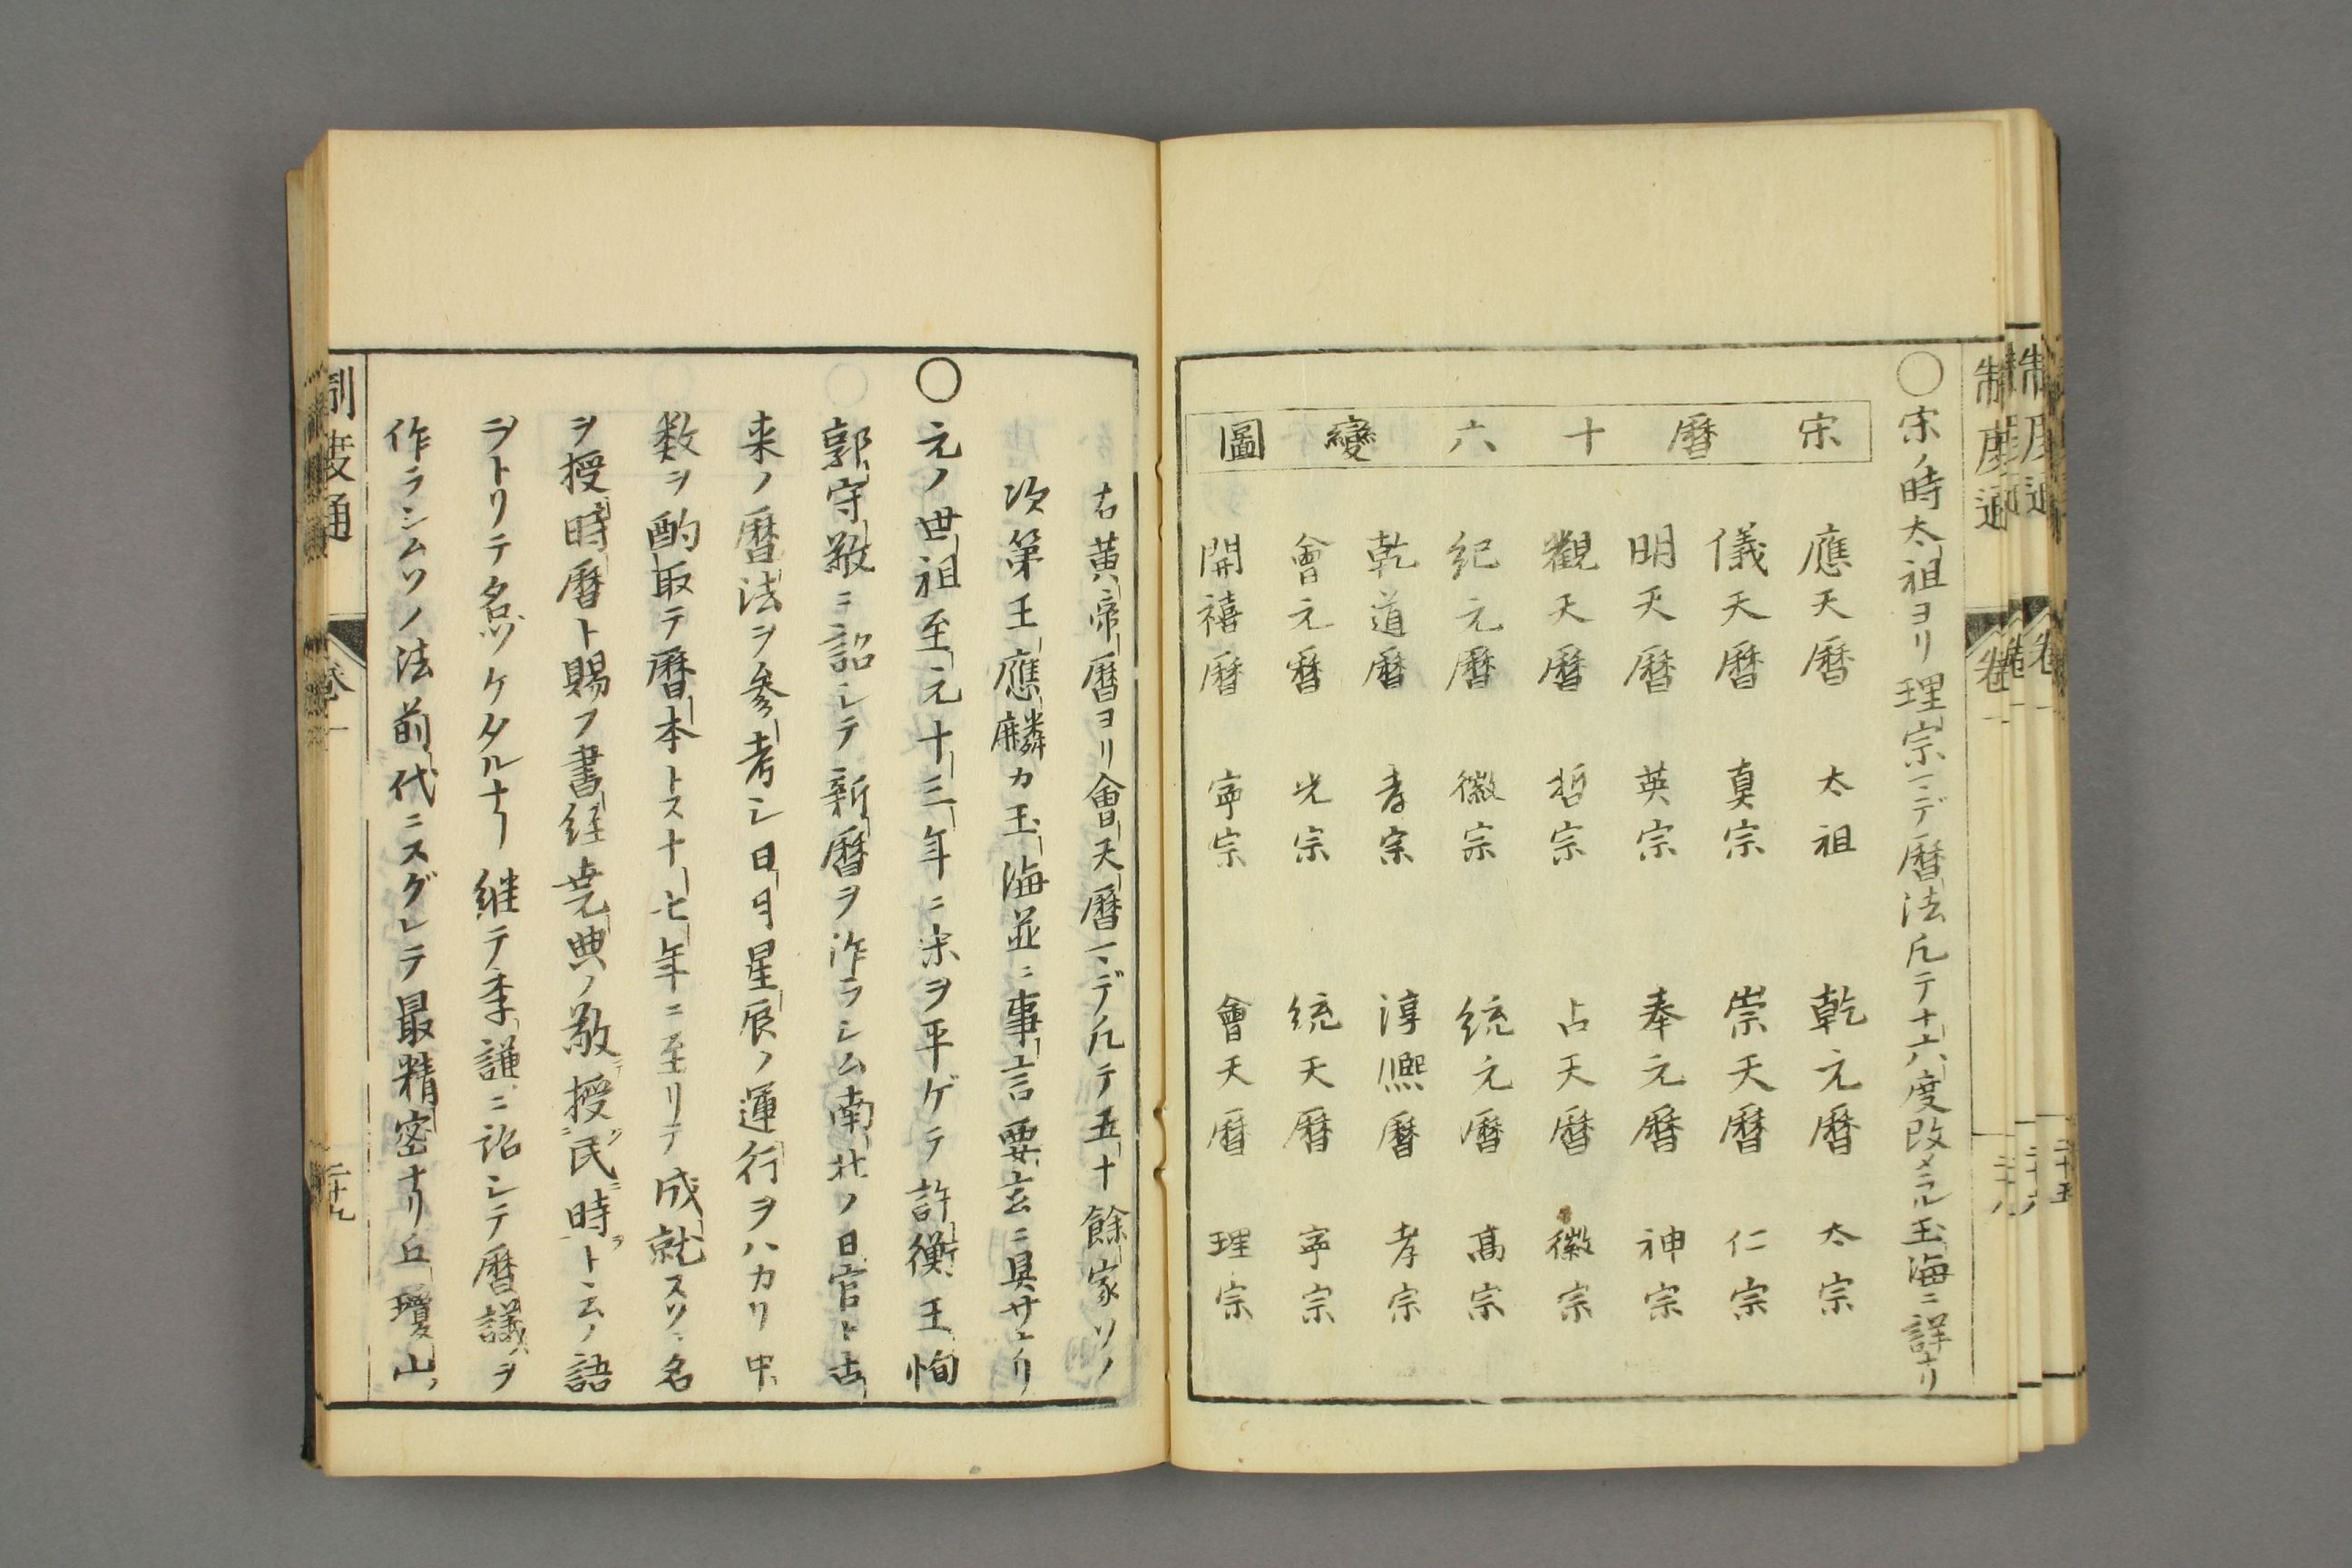 〇宋ノ時太祖ヨリ理宗マデ曆法凡テ十六度改メラル玉海ニ詳ナリ
宋曆十六變圖
應天曆 太祖 乾元曆 太宗
儀天曆 真宗 崇天曆 仁宗
明天曆 英宗 奉元曆 神宗
觀天曆 哲宗 占天曆 徽宗
紀元曆 徽宗 統元曆 高宗
乾道曆 孝宗 淳熈曆 孝宗
會元曆 光宗 統天曆 寧宗
開禧曆 寧宗 會天曆 理宗
右黄帝曆ヨリ會天曆マデ凡テ五十餘家ソノ
次第王應麟カ玉海並ニ事言要玄ニ具サナリ
〇元ノ世祖至元十三年ニ宋ヲ平ゲテ許衡王恂
郭守敬ニ詔シテ新曆ヲ作ラシム南北ノ日官ト古
来ノ曆法ヲ参考シ日月星辰ノ運行ヲハカリ中
数ヲ酌取テ曆本トス十七年ニ至リテ成就スソノ名
ヲ授時曆ト賜フ書経尭典ノ敬授民時ト云ノ語
ヲトリテ名ツケタルナリ継テ李謙ニ詔シテ曆議ヲ
作ラシムソノ法前代ニスグレテ最精密ナリ丘瓊山ノ
制度通 卷一 二十九